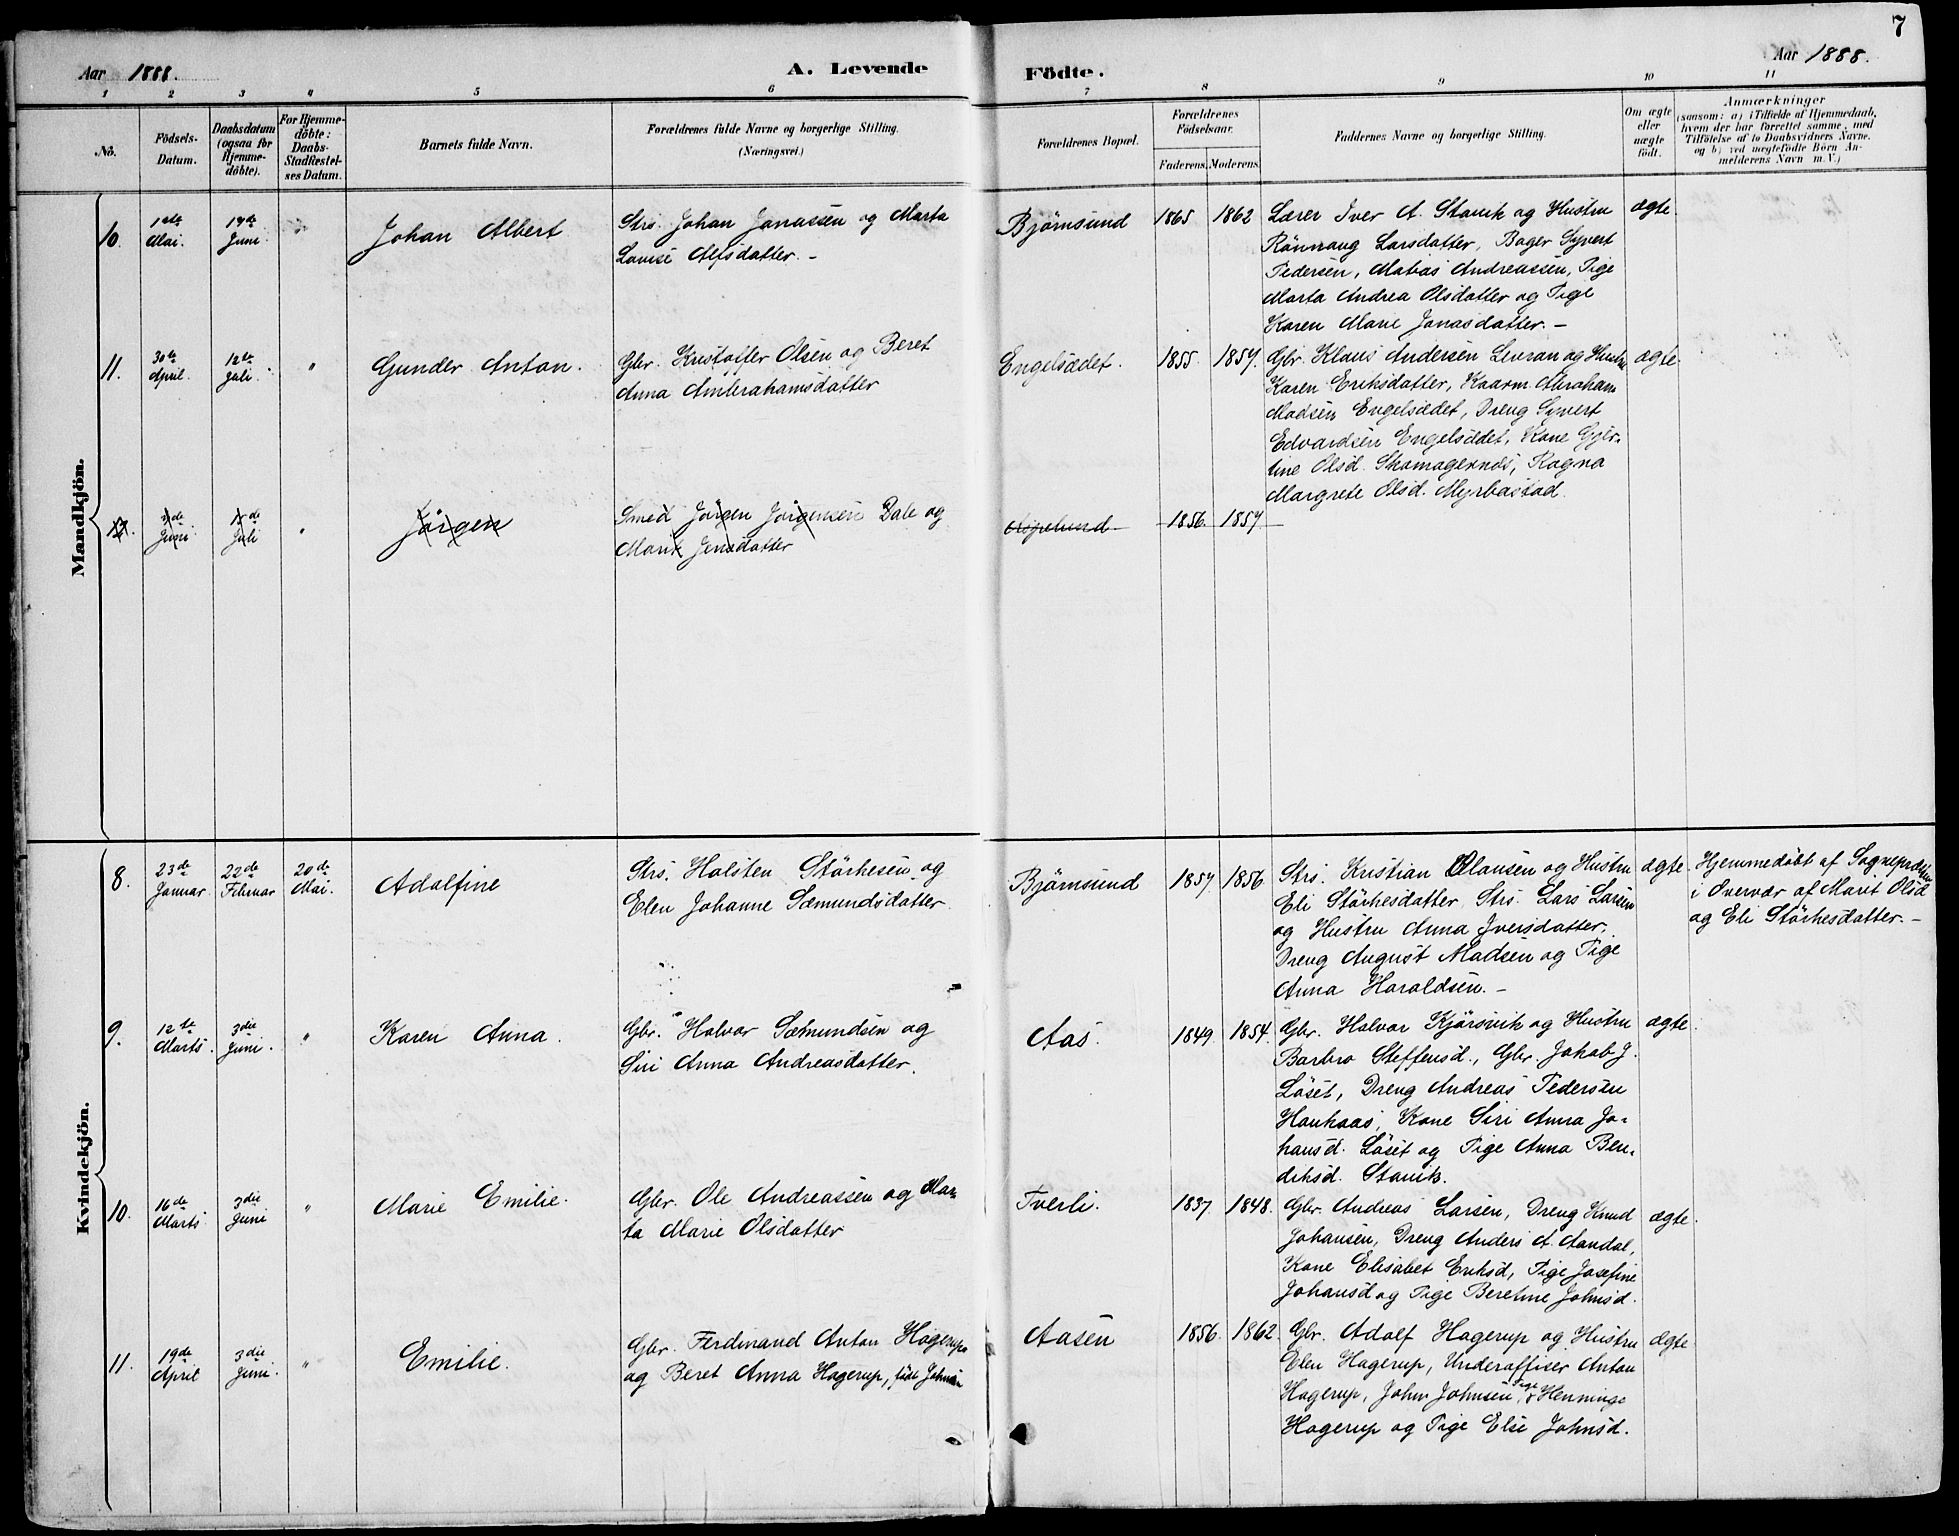 7
Aar 1888.
A. Levende Födte.
Aar 1888.
1 2 3 4 5 6 7 8 9 10 11
No.
Födsels-
Datum.
Daabsdatum
(ogsaa for
Hjemme-
döbte).
For Hjemme-
döbte:
Daabs-
Stadfæstel-
ses Datum.
Barnets fulde Navn.
Forældrenes fulde Navne og borgerlige Stilling.
(Næringsvei.)
Forældrenes Bopæl.
Forældrenes
Födselsaar.
Faderens. Moderens.
Faddernes Navne og borgerlige Stilling.
Om ægte
eller
uægte
födt.
Anmærkninger
(saasom: a) i Tilfælde af Hjemmedaab,
hvem der har forrettet samme, med
Tilföielse af to Daabsvidners Navne.
og b) ved uægtefödte Börn An-
melderens Navn m. V.)
Mandkjön.
10.
1ste
Mai.
17de
Juni.
"
Johan Albert
Strs. Johan Jonassen og Marta
Lovise Alfsdatter. -
Björnsund
1865 1862
Lærer Iver A. Stavik og Hustru
Rönnaug Larsdatter, Bager Syvert
Pedersen, Matias Andreassen, Pige
Marta Andrea Olsdatter og Pige
Karen Marie Jonasdatter. -
ægte
11.
30te
April.
12te
Juli.
"
Gunder Anton.
Gbr. Kristoffer Olsen og Beret
Anna Abrahamsdatter
Engelsædet.
1855. 1857.
Gbr. Klaus Andersen Levran og Hustru
Karen Eriksdatter, Kaarm. Abraham
Madsen Engelsædet, Dreng Syvert
Edvardsen Engelsædet, Kone Gjer-
tine Olsd. Skomagernes, Ragna
Margrete Olsd. Myrbostad.
ægte
12.
de
Juni.
1de
Juli
"
Jörgen
Smed Jörgen Jörgensen Dale og
Marit Jensdatter
1856. 1857
Kvindekjön.
8.
23de
Januar.
22de
Februar
20de
Mai.
Adolfine
Strs. Holsten Störkesen og
Elen Johanne Sæmundsdatter.
Björnsund
1857 1856.
Strs. Kristian Olausen og Hustru
Eli Störkesdatter, Strs. Lars Larsen
og Hustru Anna Iversdatter,
Dreng August Madsen og Pige
Anna Haraldsen. -
ægte.
Hjemmedöbt af Sognepræsten
i Overvær af Marit Olsd.
og Eli Störkesdatter. -
9.
12te
Marts.
3die
Juni.
"
Karen Anna.
Gbr. Halvor Sæmundsen og
Siri Anna Andreasdatter.
Aas.
1849. 1854.
Gbr. Halvor Kjörsvik og Hustru
Barbro Steffensd., Gbr. Jakob J.
Löset, Dreng Andreas Pedersen
Haukaas, Kone Siri Anna Jo-
hansd. Löset og Pige Anna Ben-
diksd. Stavik.
ægte.
10.
16de
Marts.
3die
Juni
"
Marie Emilie.
Gbr. Ole Andreassen og Mar-
ta Marie Olsdatter
Tverli.
1837. 1848.
Gbr. Andreas Larsen, Dreng Knud
Johansen, Dreng Anders A. Aandal,
Kone Elisabet Eriksd, Pige Josefine
Johansd og Pige Beretine Johnsd.
ægte.
11.
19de
April
3die
Juni.
"
Emilie.
Gbr. Ferdinand Anton Hagerup
og Beret Anna Hagerup, född Johnsen
Aasen
1856. 1862.
Gbr. Adolf Hagerup og Hustru
Elen Hagerup, Underofficer Anton
Hagerup, John Johnsen, Pige Henninge
Hagerup og Pige Else Johnsd.
ægte